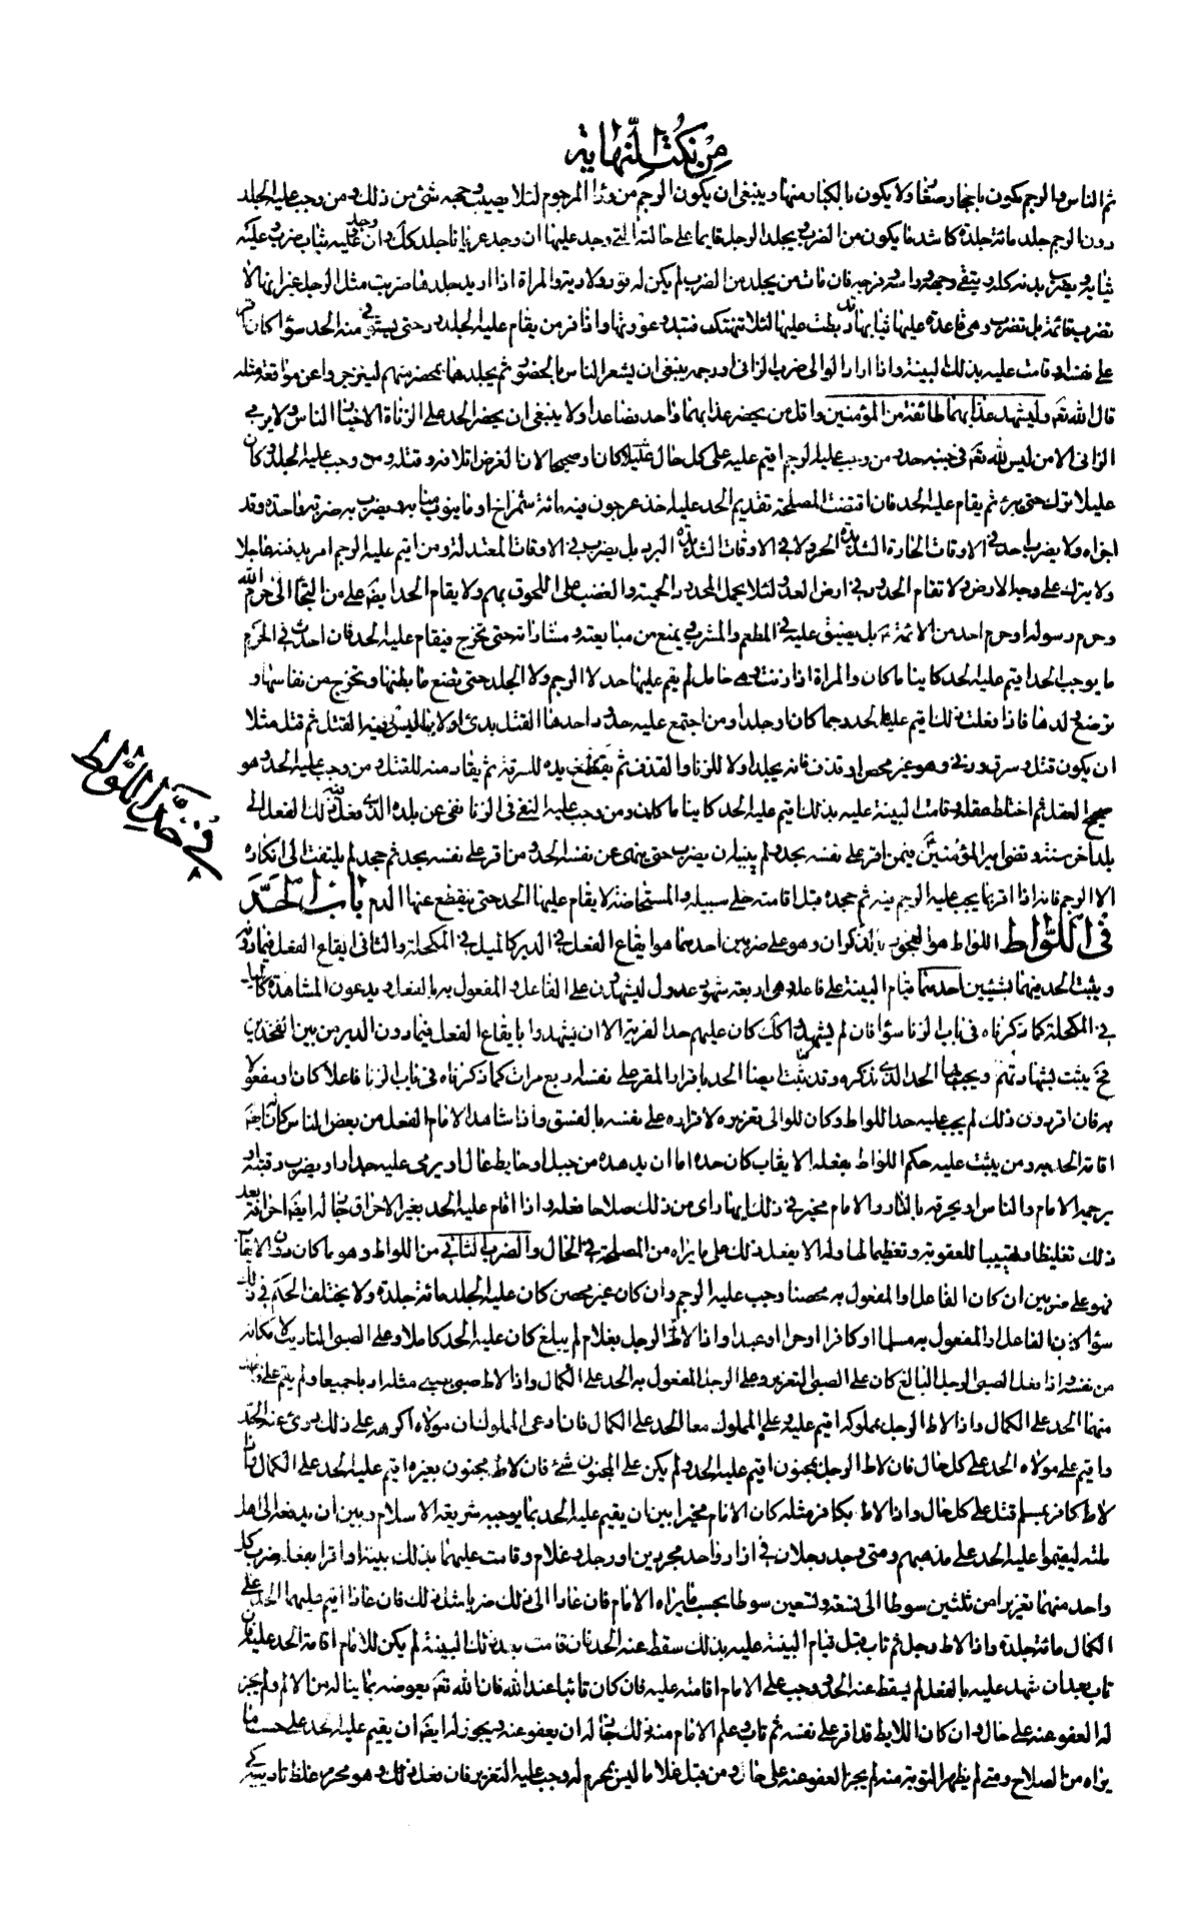 من نكت النهاية
ثم الناس والرجم يكون باحجار صغار ولا يكون بالكبار منها وينبغي ان يكون الرجم من وراء المرجوم لئلا يصيب وجهه شئ من ذلك ومن وجب عليه الجلد
دون الرجم جلد مائة جلدة كاشد ما يكون من الضرب ويجلد الرجل قايما على حالته التي وجد عليها ان وجد عريانا جلد كذلك وان وجد وعليه ثياب ضرب وعليه
ثيابه ويضرب بدنه كله ويتقى وجهه وراسه وفرجه فان مات من يجلد من الضرب لم يكن له قود ولا دية والمراة اذا اريد جلدها ضربت مثل الرجل غير انها لا
تضرب قائمة بل تضرب وهى قاعدة عليها ثيابها قد ربطت عليها لئلا تنهتك فتبدو عورتها واذا فر من يقام عليه الجلد رد حتى يستوفى منه الحد سواء كان اقر
على نفسه او قامت عليه بذلك البينة واذا اراد الوالى ضرب الزانى او رجمه ينبغي ان يشعر الناس بالحضور ثم يجلدهما بمحضر منهم لينزجروا عن مواقعة مثله
قال الله تعالى وليشهد عذابهما طائفة من المؤمنين واقل من يحضر عذابهما واحد فصاعدا ولا ينبغي ان يحضر الحد على الزناة الا خيار الناس ولا يرمى
الزانى الا من ليس لله تعالى في جنبه حد ومن وجب عليه الرجم اقيم عليه على كل حال عليلا كان او صحيحا لان الغرض اتلافه وقتله ومن وجب عليه الجلد وكان
عليلا ترك حتى يبرء ثم يقام عليه الحد فان اقتضت المصلحة تقديم الحد عليه اخذ عرجون فيه مائة شمراخ او ما ينوب منابه ويضرب به ضربة واحدة وقد
اجزاه ولا يضرب احد في الاوقات الحارة الشديدة الحر ولا في الاوقات الشديدة البرد بل يضرب في الاوقات المعتدلة ومن اقيم عليه الرجم امر بدفنه عاجلا
ولا يترك على وجه الارض ولا تقام الحدود في ارض العدو لئلا يحمل المحدود الحمية والغضب على اللحوق بهم ولا يقام الحد ايضا على من التجأ الى حرم الله
وحرم رسوله او حرم احد من الائمة بل يضيق عليه في المطعم والمشرب ويمنع من مبايعته ومشاراته حتى يخرج فيقام عليه الحد فان احدث في الحرم
ما يوجب الحد اقيم عليه الحد كاينا ما كان والمراة اذا زنت وهى حامل لم يقم عليها حد لا الرجم ولا الجلد حتى تضع ما بطنها وتخرج من نفاسها و
ترضع ولدها فاذا فعلت ذلك اقيم عليها الحد رجما كان او جلدا ومن اجتمع عليه حدود احدها القتل بدئ اولا بما ليس فيه القتل ثم قتل مثلا
ان يكون قتل وسرق وزنى وهو غير محصن او قذف فانه يجلد اولا للزنا او القذف ثم يقطع يده للسرقة ثم يقاد منه للقتل ومن وجب عليه الحد وهو
صحيح العقل ثم اختلط عقله وقامت البينة عليه بذلك اقيم عليه الحد كاينا ما كان ومن وجب عليه النفى في الزنا نفى عن بلده الذي فعل فيه ذلك الفعل الى
بلد اخر سنة وقضى امير المؤمنين فيمن اقر على نفسه بحد ولم يبين ان يضرب حتى ينهى عن نفسه الحد ومن اقر على نفسه بحد ثم جحد لم يلتفت الى انكاره
الا الرجم فانه اذا اقر بما يجب عليه الرجم فيه ثم جحده قبل اقامته خلى سبيله والمستحاضة لا يقام عليها الحد حتى ينقطع عنها الدم باب الحد
في اللواط اللواط هو الفجور بالذكران وهو على ضربين احدهما هو ايقاع الفعل في الدبر كالميل في المكحلة والثانى ايقاع الفعل فيما دونه
ويثبت الحد فيهما بشيئين احدهما قيام البينة على فاعله وهى اربعة شهود عدول يشهدون على الفاعل والمفعول به بالفعل ويدعون المشاهدة كالميل
في المكحلة كما ذكرناه في باب الزنا سواء فان لم يشهدوا كذلك كان عليهم حد الفرية الا ان يشهدوا بايقاع الفعل فيما دون الدبر من بين الفخذين
فحينئذ يثبت شهادتهم ويجب بها الحد الذي نذكره وقد يثبت ايضا الحد باقرار المقر على نفسه اربع مرات كما ذكرناه في باب الزنا فاعلا كان او مفعولا
به فان اقر دون ذلك لم يجب عليه حد اللواط وكان للوالى تعزيره لاقراره على نفسه بالفسق واذا شاهد الامام الفعل من بعض الناس كان له
اقامة الحد به ومن يثبت عليه حكم اللواط بفعله الايقاب كان حده اما ان يدهده من جبل او حايط عال او يرمى عليه جدار او يضرب رقبته او
يرجمه الامام والناس او يحرقه بالنار والامام مخير في ذلك ايها رأى من ذلك صلاحا فعله واذا اقام عليه الحد بغير الاحراق جاز له ايضا احراقه بعد
ذلك تغليظا وتهييبا للعقوبة وتعظيما لها وله الا يفعل ذلك على ما يراه من المصلحة في الحال والضرب الثانى من اللواط وهو ما كان دون الايقاب
فهو على ضربين ان كان الفاعل او المفعول به محصنا وجب عليه الرجم وان كان غير محصن كان عليه الجلد مائة جلدة ولا يختلف الحكم في ذلك
سواء كان الفاعل او المفعول به مسلما او كافرا او حرا او عبدا واذا لاط الرجل بغلام لم يبلغ كان عليه الحد كاملا وعلى الصبى التاديب لامكانه
من نفسه واذا فعل الصبى الرجل البالغ كان على الصبى التعزير وعلى الرجل المفعول به الحد على الكمال واذا لاط صبى بصبى مثله ادبا جميعا ولم يقم على واحد
منهما الحد على الكمال واذا لاط الرجل بمملوكه اقيم عليه وعلى المملوك معا الحد على الكمال فان ادعى المملوك ان مولاه اكرهه على ذلك درئ عنه الحد
واقيم على مولاه الحد على كل حال فان لاط الرجل بمجنون اقيم عليه الحد ولم يكن على المجنون شئ فان لاط مجنون بغيره اقيم عليه الحد على الكمال فان
لاط كافر بمسلم قتل على كل حال واذا لاط بكافر مثله كان الامام مخيرا بين ان يقيم عليه الحد بما يوجبه شريعة الاسلام وبين ان يدفعه الى اهل
ملته ليقيموا عليه الحد على مذهبهم ومتى وجد رجلان في ازار واحد مجردين او رجل وغلام وقامت عليهما بذلك بينة او اقرا بفعله ضرب كل
واحد منهما تعزيرا من ثلثين سوطا الى تسعة وتسعين سوطا بحسب ما يراه الامام فان عادا الى ذلك ضربا مثل ذلك فان عادا اقيم عليهما الحد على
الكمال مائة جلدة واذا لاط رجل ثم تاب قبل قيام البينة عليه بذلك سقط عنه الحد فان قامت بعد ذلك البينة لم يكن للامام اقامة الحد عليه فان
تاب بعد ان شهد عليه بالفعل لم يسقط عنه الحد ووجب على الامام اقامته عليه فان كان تائبا عند الله فان الله تعالى يعوضه بما يناله من الالم ولم يجز
له العفو عنه على حال وان كان اللايط قد اقر على نفسه ثم تاب وعلم الامام منه ذلك جاز له ان يعفو عنه ويجوز له ايضا ان يقيم عليه الحد على حسب ما
يراه من الصلاح ومتى لم يظهر التوبة منه لم يجز العفو عنه على حال ومن قبل غلاما ليس بمحرم له وجب عليه التعزير فان فعل ذلك وهو محرم غلظ تاديبه كى
في حد اللواط